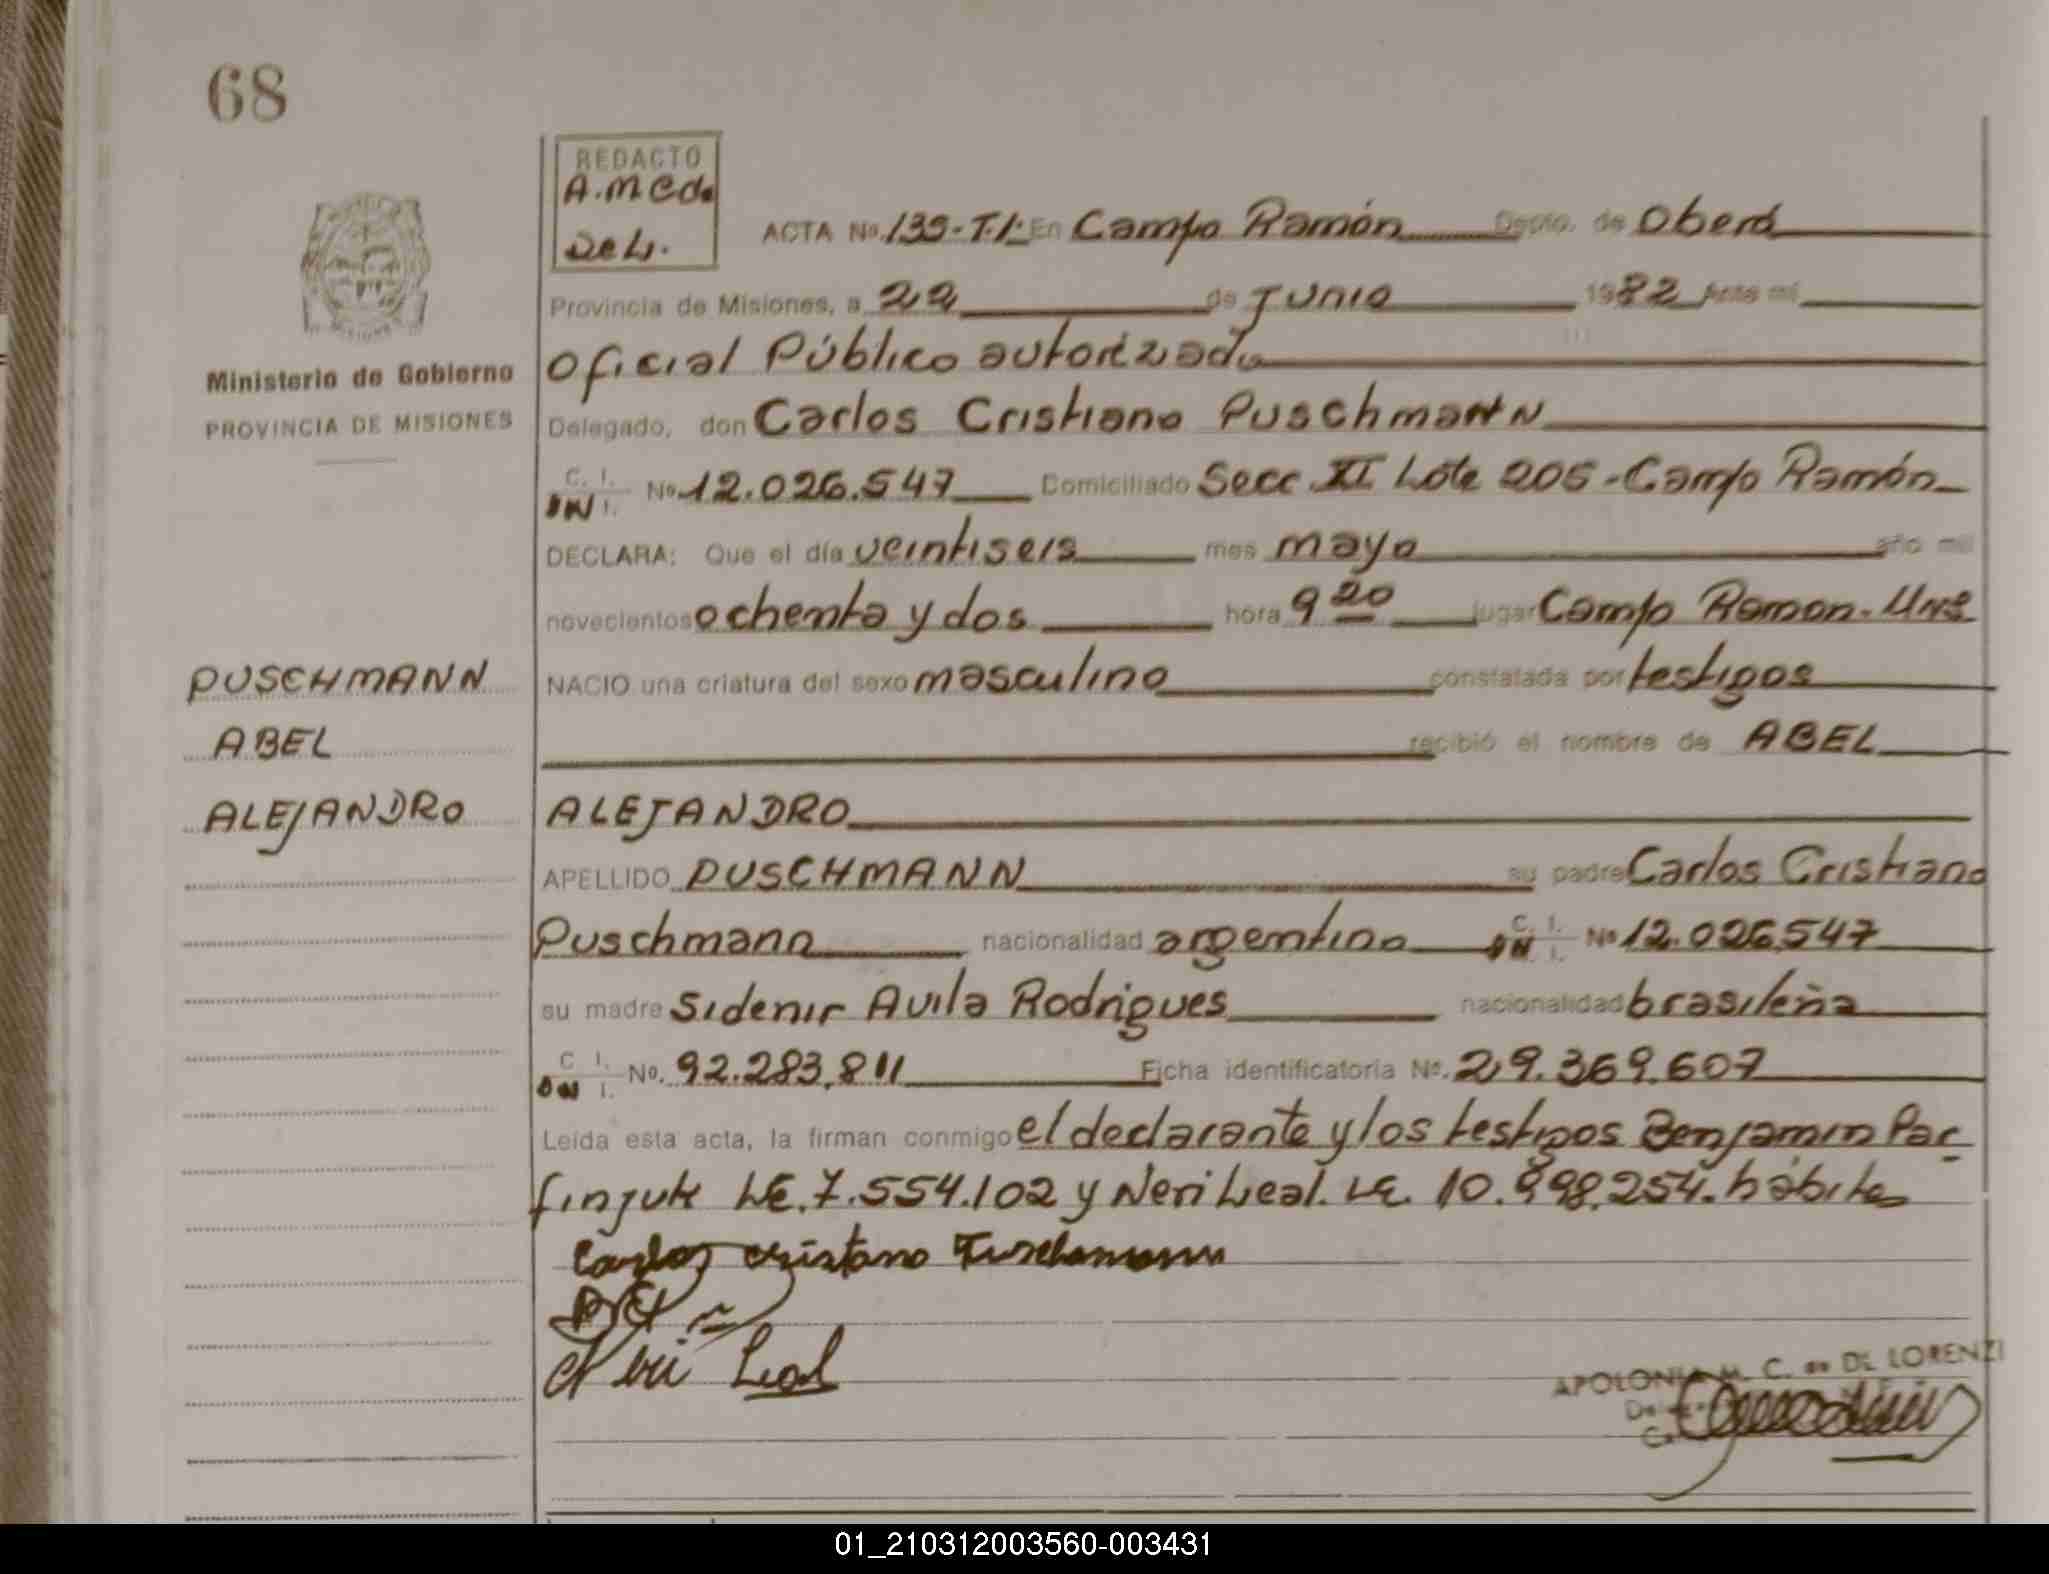 68
REDACTO
A.M Cd.
De L.
ACTA No. 135-T.1. En Campo Ramón Depto. de Oberá
Provincia de Misiones, a 22 de Junio 1982 Ante mí
Oficial Público autorizado
Ministerio de Gobierno
PROVINCIA DE MISIONES
Delegado, don Carlos Cristiano Puschmann
C. I. DN I. No 12.026.547 Domiciliado Secc. XI Lote 205 - Campo Ramón
DECLARA: Que el día veintiseis mes mayo año mil
novecientos ochenta y dos hora 9 20 lugar Campo Ramon.
PUSCHMANN
NACIO una criatura del sexo masculino constatada por testigos
ABEL
recibió el nombre de ABEL
ALEJANDRO
ALEJANDRO
APELLIDO PUSCHMANN su padre Carlos Cristiano
Puschmann nacionalidad argentina C. I. DN I. No 12.026.547
su madre Sidenir Avila Rodrigues nacionalidad brasileña
C I. DN I. No. 92.283.811 Ficha identificatoria No. 29.369.607
Leída esta acta, la firman conmigo el declarante y los testigos Benjamin Par
finjuk LE. 7.554.102 y Neri Leal. LE. 10.998.254. hábiles
Carlos Cristiano Puschmann
Neri Leal
APOLONIA M. C. de DE LORENZI
01_210312003560-003431